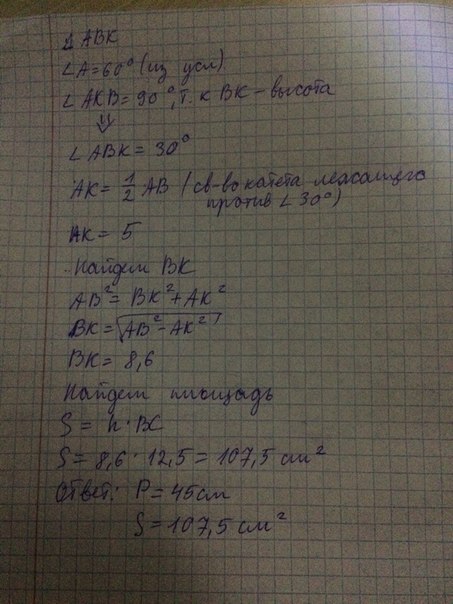 Δ ABK
∠A=60° (из усл)
∠AKB=90°, т. к BK – высота
⇓
∠ABK = 30°
AK = 1/2 AB (св-во катета лежащего
против ∠30°)
AK = 5
Найдем BK
AB² = BK² + AK²
BK = √(AB² – AK²)
BK = 8,6
Найдем площадь
S = h · BC
S = 8,6 · 12,5 = 107,5 см²
Ответ: P = 45см
S = 107,5 см²